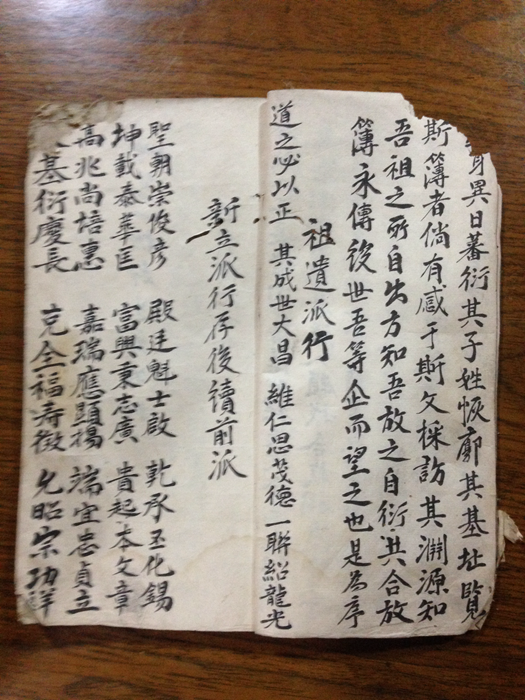 異日蕃衍其子姓恢廓其基址覧
斯簿者倘有感于斯文採訪其淵源知
吾祖之所自出方知吾放之自衍共合放
簿永傳後世吾等企而望之也是為序
祖遺派行
道之必以正 其成世大昌 維仁思茂德 一聯紹龍光
新立派行存後續前派
聖朝崇俊彦 殿廷魁士啟 乾承丕化錫
坤載泰華匡 富興秉志廣 貴起本文章
高兆尚培惠 嘉瑞應顕揚 端宜忠貞立
基衍慶長 克全福壽徵 允昭宗功祥